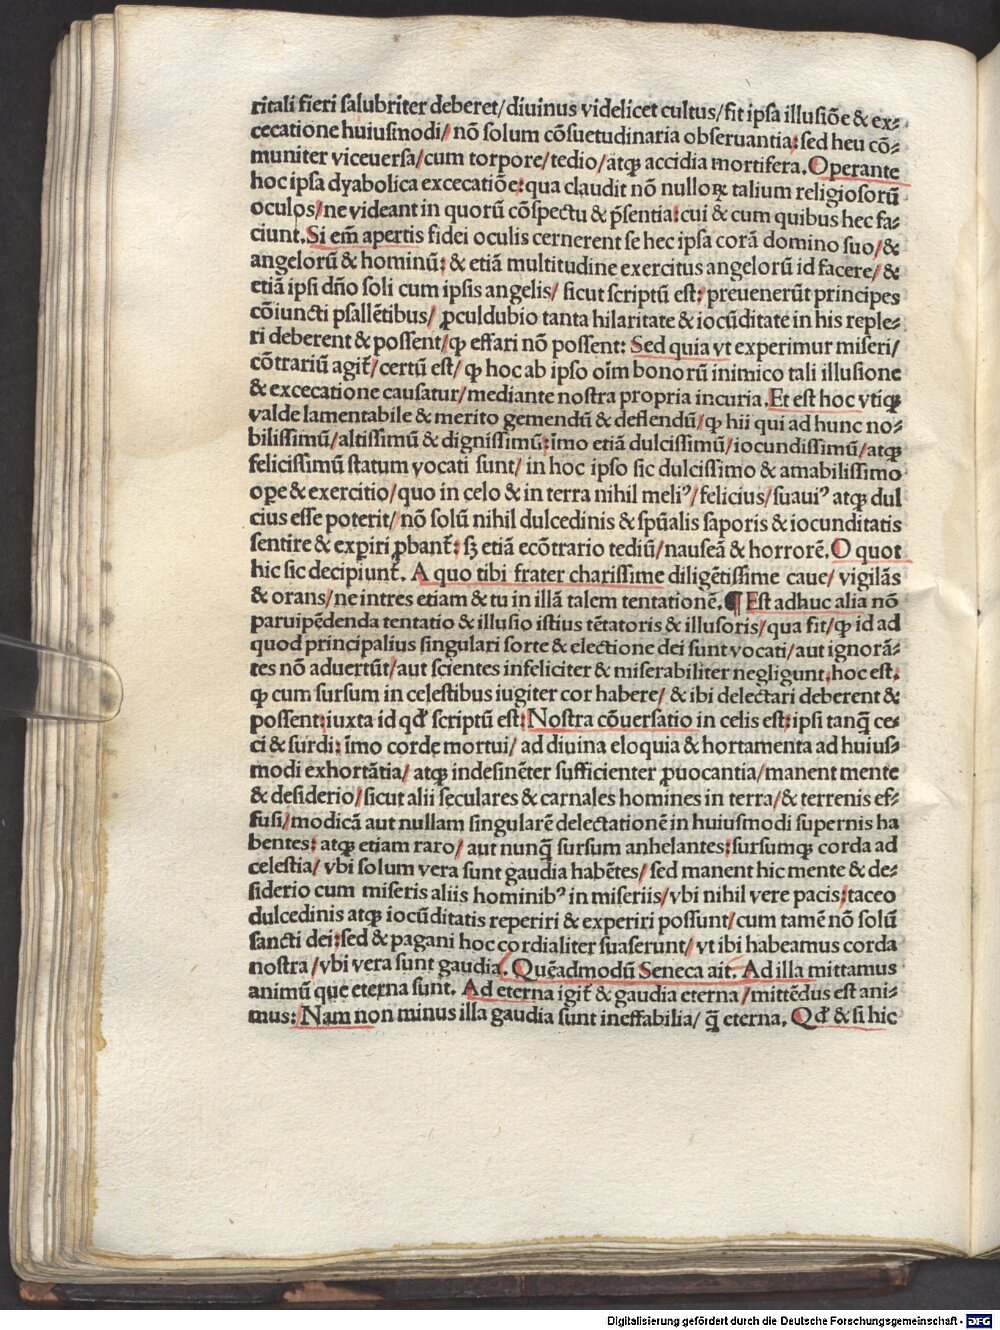 ritali fieri salubriter deberet/diuinus videlicet cultus/fit ipsa illusiōe & ex⸗
cecatione huiusmodi/nō solum cōsuetudinaria obseruantia:sed heu cō⸗
muniter viceuersa/cum torpore/tedio/atqꝫ accidia mortifera.Operante
hoc ipsa dyabolica excecatiōe:qua claudit nō nulloꝝ talium religiosorū
oculos/ne videant in quorū cōspectu & p̄sentia:cui & cum quibus hec fa⸗
ciunt.Si em̄ apertis fidei oculis cernerent se hec ipsa corā domino suo/&
angelorū & hominū:& etiā multitudine exercitus angelorū id facere/&
etiā ipsi dn̄o soli cum ipsis angelis/ sicut scriptū est:preuenerūt principes
cōiuncti psallētibus/ ꝓculdubio tanta hilaritate & iocūditate in his reple⸗
ri deberent & possent/ꝙ effari nō possent: Sed quia vt experimur miseri/
cōtrariū agit᷑/certū est/ꝙ hoc ab ipso oīm bonorū inimico tali illusione
& excecatione causatur/mediante nostra propria incuria.Et est hoc vtiqꝫ
valde lamentabile & merito gemendū & deflendū/ꝙ hii qui ad hunc no⸗
bilissimū/altissimū & dignissimū:īmo etiā dulcissimū/iocundissimū/atqꝫ
felicissimū statum vocati sunt/ in hoc ipso sic dulcissimo & amabilissimo
oꝑe & exercitio/quo in celo & in terra nihil meliꝰ/felicius/suauiꝰ atqꝫ dul
cius esse poterit/nō solū nihil dulcedinis & spūalis saporis & iocunditatis
sentire & exꝑiri ꝓbant᷑:sꝫ etiā ecōtrario tediū/nauseā & horrorē.O quot
hic sic decipiunt᷑. A quo tibi frater charissime diligētissime caue/ vigilās
& orans/ne intres etiam & tu in illā talem tentationē.¶ Est adhuc alia nō
paruipēdenda tentatio & illusio istius tētatoris & illusoris/qua fit/ꝙ id ad
quod principalius singulari sorte & electione dei sunt vocati/aut ignorā⸗
tes nō aduertūt/aut scientes infeliciter & miserabiliter negligunt.hoc est.
ꝙ cum sursum in celestibus iugiter cor habere/ & ibi delectari deberent &
possent:iuxta id qd̄ scriptū est:Nostra cōuersatio in celis est:ipsi tanq̄ ce⸗
ci & surdi:īmo corde mortui/ ad diuina eloquia & hortamenta ad huius⸗
modi exhortātia/ atqꝫ indesinēter sufficienter ꝓuocantia/manent mente
& desiderio/sicut alii seculares & carnales homines in terra/& terrenis ef⸗
fusi/modicā aut nullam singularē delectationē in huiusmodi supernis ha
bentes:atqꝫ etiam raro/ aut nunq̄ sursum anhelantes:sursumqꝫ corda ad
celestia/ vbi solum vera sunt gaudia habētes/ sed manent hic mente & de⸗
siderio cum miseris aliis hominibꝰ in miseriis/vbi nihil vere pacis:taceo
dulcedinis atqꝫ iocūditatis reperiri & experiri possunt/cum tamē nō solū
sancti dei:sed & pagani hoc cordialiter suaserunt/ vt ibi habeamus corda
nostra/vbi vera sunt gaudia. Quēadmodū Seneca ait. Ad illa mittamus
animū que eterna sunt. Ad eterna igit᷑ & gaudia eterna/mittēdus est ani⸗
mus:Nam non minus illa gaudia sunt ineffabilia/ q̄ eterna. Qd̄ & si hic
Digitalisierung gefördert durch die Deutsche Forschungsgemeinschaft - DFG